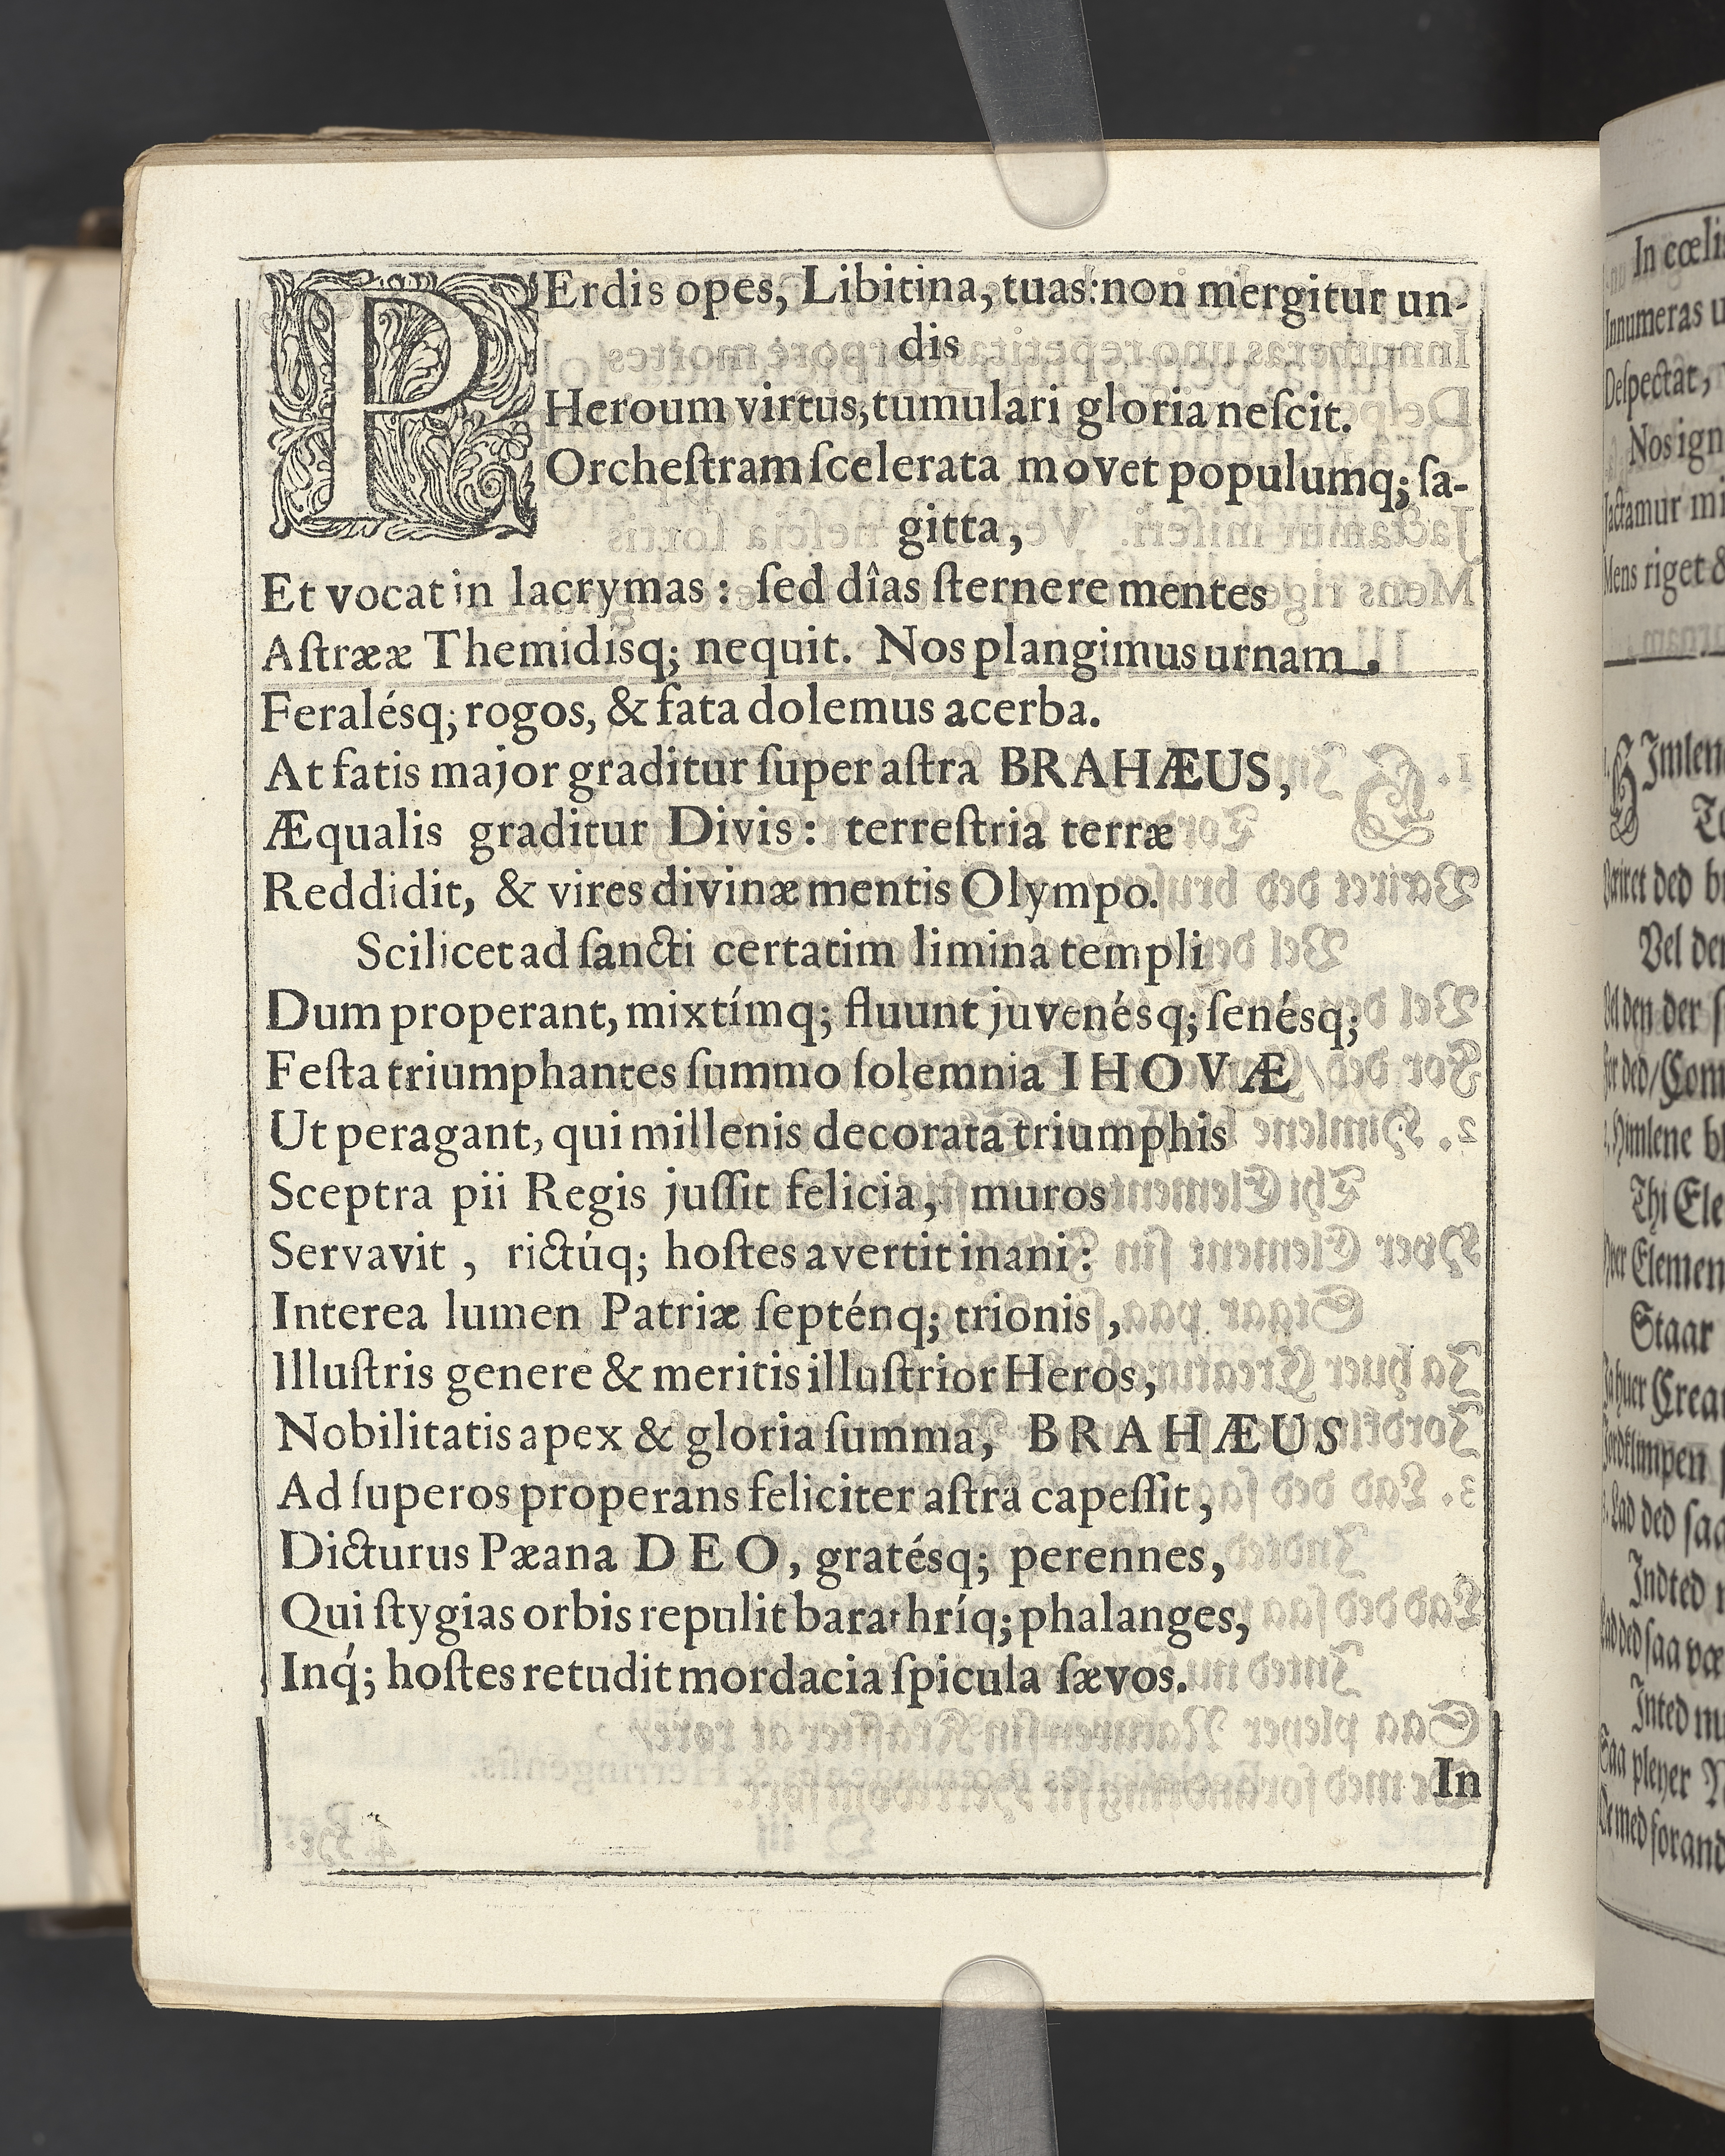 PErdis opes, Libitina, tuas: non mergitur un-
dis
Heroum virtus, tumulari gloria neſcit.
Orcheſtram ſcelerata movet populumq; ſa-
gitta,
Et vocat in lacrymas: ſed dîas ſternere mentes
Aſtrææ Themidisq; nequit. Nos plangimus urnam.
Feralésq; rogos, & fata dolemus acerba.
At fatis major graditur ſuper aſtra BRAHÆUS,
Æqualis graditur Divis: terreſtria terræ
Reddidit, & vires divinæ mentis Olympo.
Scilicet ad ſancti certatim limina templi
Dum properant, mixtímq; fluunt juvenésq; ſenésq;
Feſta triumphantes ſummo ſolemnia IHOVÆ
Ut peragant, qui millenis decorata triumphis
Sceptra pii Regis juſſit felicia, muros
Servavit, rictúq; hoſtes avertit inani:
Interea lumen Patriæ ſepténq; trionis,
Illuſtris genere & meritis illuſtrior Heros,
Nobilitatis apex & gloria ſumma, BRAHÆUS
Ad ſuperos properans feliciter aſtra capeſſit,
Dicturus Pæana DEO, gratésq; perennes,
Qui ſtygias orbis repulit barathríq; phalanges,
Inq́; hoſtes retudit mordacia ſpicula ſævos.
In
In
Innumeras
Deſpectat,
Nos ign
Jactamur mi
Mens riget &
Staar